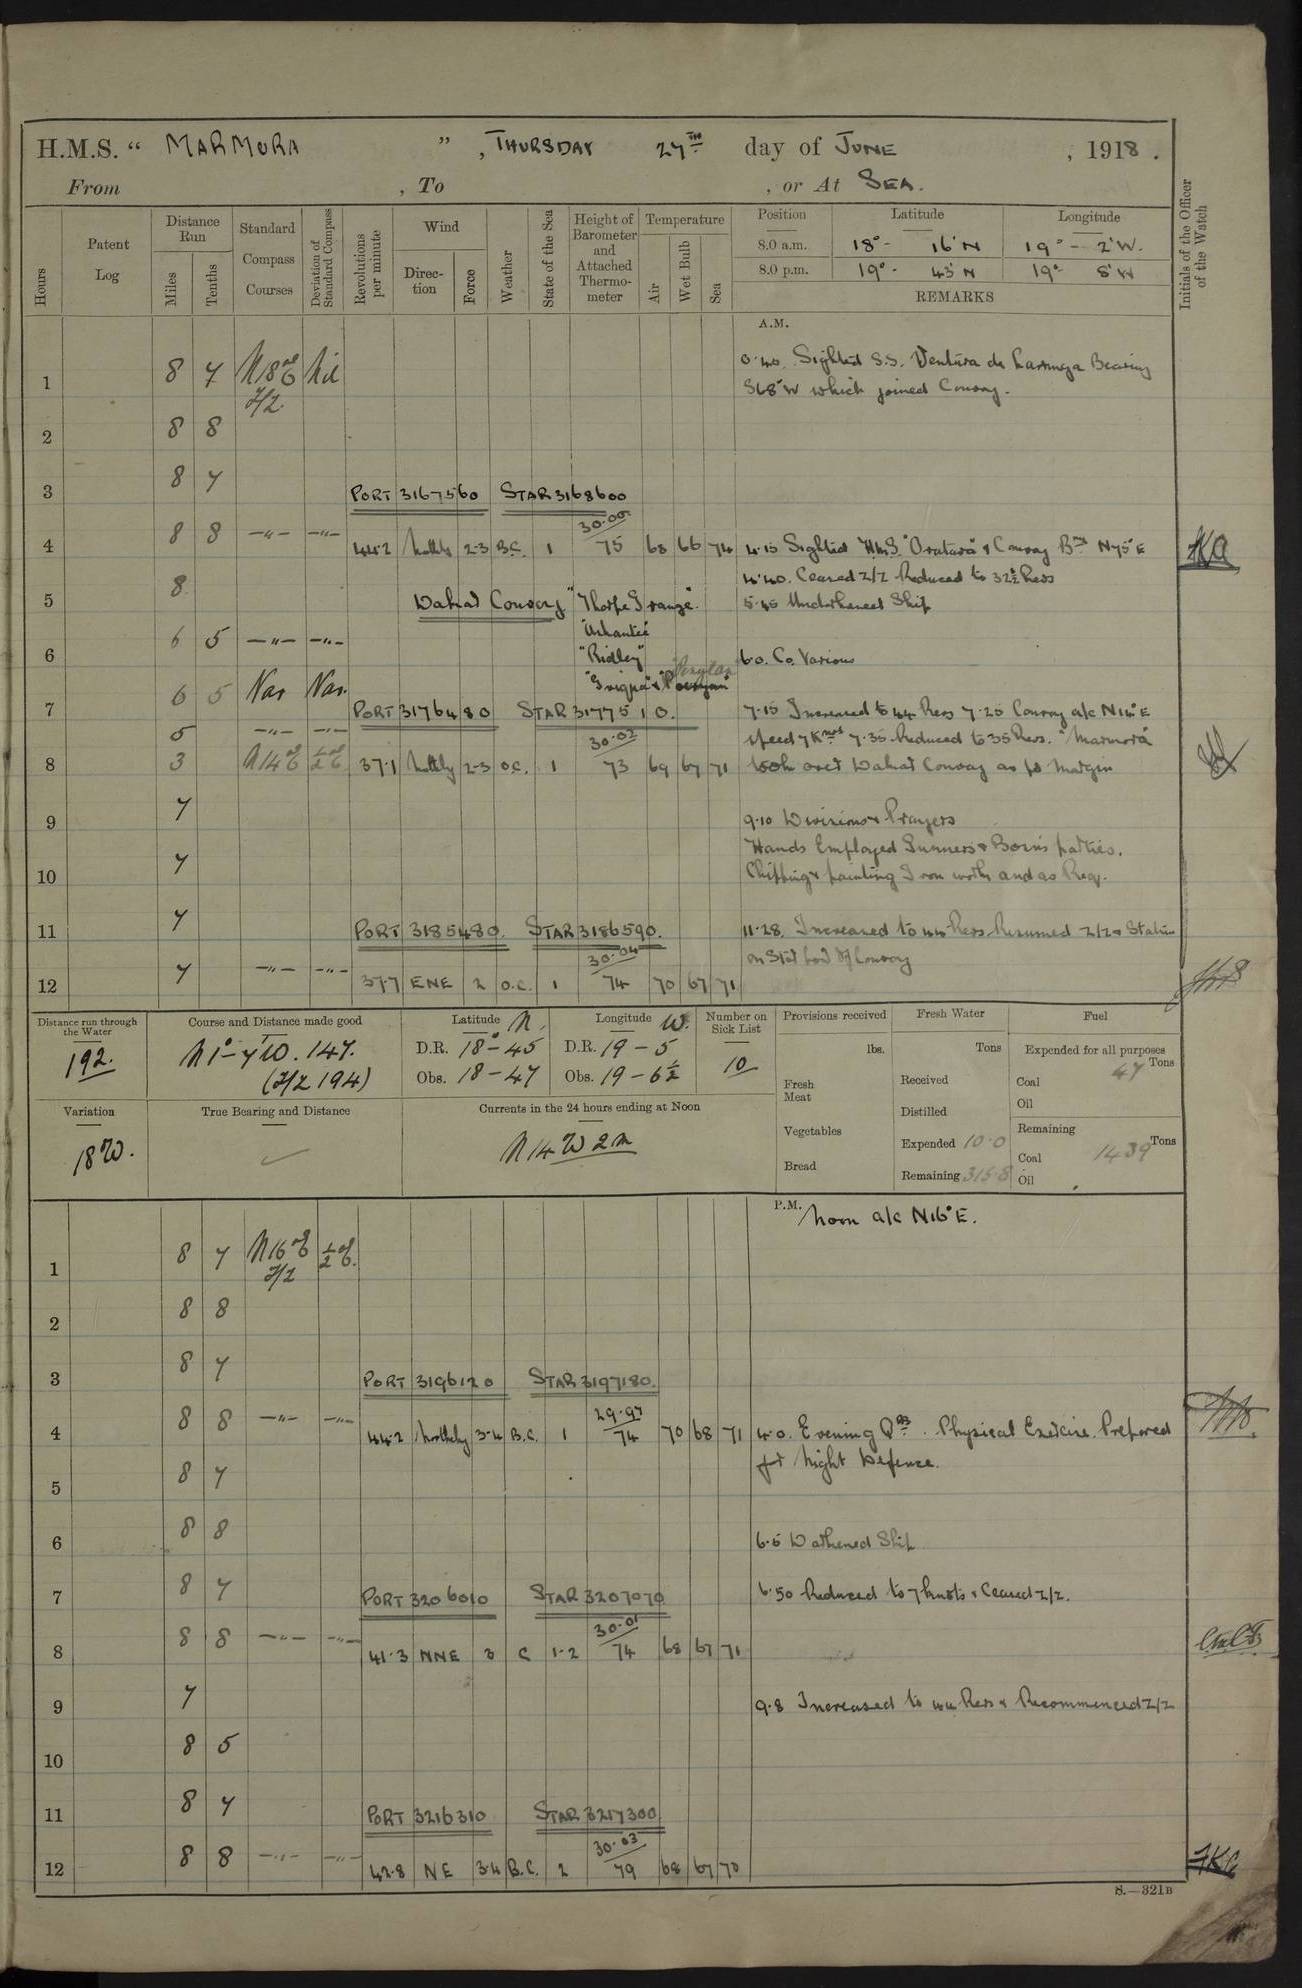 H.M.S. “ MARMORA ” , THURSDAY 27TH day of JUNE , 1918 .
From , To , or At SEA.
Hours
Patent Log
Distance Run
Miles
Tenths
Standard Compass Courses
Deviation of Standard Compass
Revolutions per minute
Wind
Direction
Force
Weather
State of the Sea
Height of Barometer and Attached Thermometer
Temperature
Air
Wet Bulb
Sea
Position Latitude Longitude
8.0 a.m. 18° - 16' N 19° - 2' W.
8.0 p.m. 19° - 43' N 19° 8' W
REMARKS
Initials of the Officer of the Watch
A.M.
0.40. Sighted S.S. Ventura de Bearing
1 8 7 N18°E Nil
Z/2
S68°W which joined Convoy.
2 8 8
3 8 7
PORT 3167560 STAR 3168600
30.00
4 8 8 —"— —"— 44.2 2-3 B.C. 1 75 68 66 74 4.15 Sighted H.M.S. "Orotava" & Convoy N75°E
4.40. Ceased Z/2 Reduced to 32½ Revs
5 8 Dakar Convoy "Thorpe Grange" 5.45 Undarkened Ship
"Ashantee"
6 6 5 —"— —"— "Ridley" 6.0. Co. Various
7 6 5 Var Var.
PORT 3176480 STAR 3177510.
7.15 Increased to 44 Revs 7.25 Convoy a/c N14°E
5 —"— —"— 30.02 speed 7 Knots 7.35 Reduced to 35 Revs. "Marmora"
8 3 N14°E ½°E 37.1 2-3 O.C. 1 73 69 67 71 took over Dakar Convoy as pr Margin
9 7 9.10 Divisions & Prayers
Hands Employed Gunners & Bosns parties.
10 7 Chipping & painting Iron work and as Req.
11 7 PORT 3185480. STAR 3186590. 11.28. Increased to 44 Revs Resumed Z/2 & Station
30.04 on Stbd bow of Convoy
12 7 —"— —"— 37.7 ENE 2 O.C. 1 74 70 67 71
Distance run through the Water
192.
Course and Distance made good
N1°-7'W. 147.
(Z/2 194)
Latitude N.
D.R. 18°-45
Obs. 18-47
Longitude W.
D.R. 19-5
Obs. 19-6½
Number on Sick List
10
Provisions received
lbs.
Fresh Meat
Vegetables
Bread
Fresh Water
Tons
Received
Distilled
Expended 10.0
Remaining 315.8
Fuel
Expended for all purposes
Tons
Coal 47
Oil
Remaining
Tons
Coal 1439
Oil
Variation
18W.
True Bearing and Distance
Currents in the 24 hours ending at Noon
N14W 2m
P.M.
Noon a/c N16°E.
1 8 7 N16°E ½°E.
Z/2
2 8 8
3 8 7
PORT 3196120 STAR 3197180.
29.97
4 8 8 —"— —"— 44.2 Northerly 3-4 B.C. 1 74 70 68 71 4.0. Evening Qrs. Physical Exercise. Prepared
for Night Defence.
5 8 7
6 8 8 6.5 Darkened Ship
7 8 7 PORT 3206010 STAR 3207070 6.50 Reduced to 7 knots & Ceased Z/2.
30.01
8 8 8 —"— —"— 41.3 NNE 3 C 1-2 74 68 67 71
9 7 9.8 Increased to 44 Revs & Recommenced Z/2
10 8 5
11 8 7 PORT 3216310 STAR 3217300
30.03
12 8 8 —"— —"— 42.8 NE 3-4 B.C. 2 79 68 67 70
S.—321B